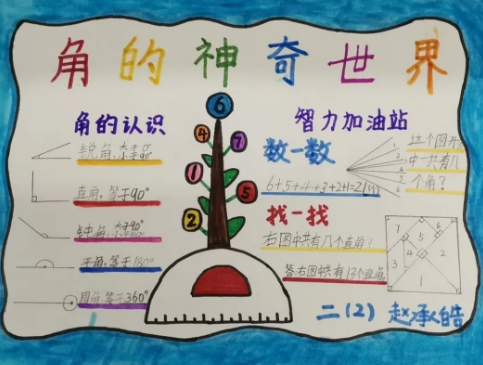 角的神奇世界
角的认识
锐角:大于0°小于90°
直角:等于90°
钝角:大于90°
平角:等于180°
周角:等于360°
6
4
7
1
5
2
智力加油站
数一数
这个图形
中一共有几
个角?
1
2
3
4
5
6
6+5+4+3+2+1=21(个)
找一找
右图中共有几个直角?
答:右图中共有13个直角
7
6
5
4
3
2
1
二(2) 赵承皓